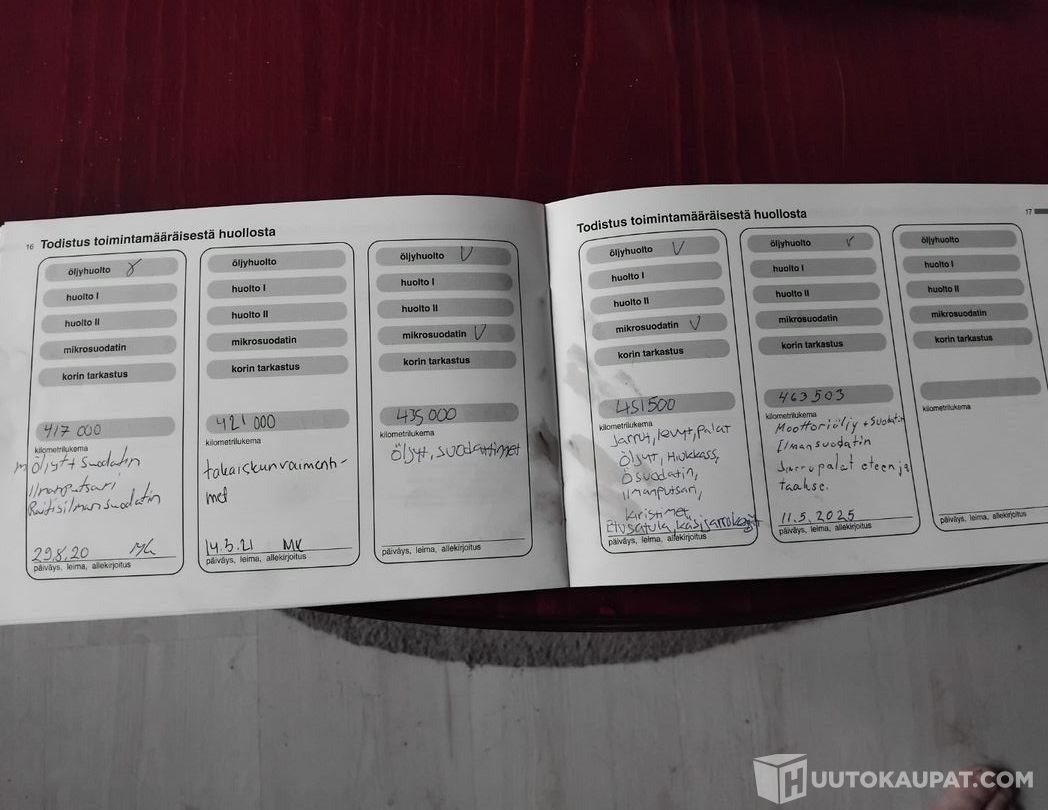 16 Todistus toimintamääräisestä huollosta
öljyhuolto
huolto I
huolto II
mikrosuodatin
korin tarkastus
417 000
kilometrilukema
m öljyt + suodatin
Ilmanputsari
Raitisilmansuodatin
29.8.20 MK
päiväys, leima, allekirjoitus
öljyhuolto
huolto I
huolto II
mikrosuodatin
korin tarkastus
421 000
kilometrilukema
takaiskunvaimenti-
met
14.5.21 MK
päiväys, leima, allekirjoitus
öljyhuolto V
huolto I
huolto II
mikrosuodatin V
korin tarkastus
435000
kilometrilukema
öljyt, suodattimet
päiväys, leima, allekirjoitus
Todistus toimintamääräisestä huollosta 17
öljyhuolto V
huolto I
huolto II
mikrosuodatin V
korin tarkastus
451500
kilometrilukema
Jarrut, levyt, palat
öljyt, Hiukkass,
ösuodatin,
Ilmanputsari,
kiristimet,
Etusatula, käsijarrukengät
päiväys, leima, allekirjoitus
öljyhuolto
huolto I
huolto II
mikrosuodatin
korin tarkastus
463503
kilometrilukema
Moottoriöljy + Suodatin
Ilmansuodatin
Jarrupalat eteen ja
taakse.
11.5.2025
päiväys, leima, allekirjoitus
öljyhuolto
huolto I
huolto II
mikrosuodatin
korin tarkastus
kilometrilukema
päiväys, leima, allekirjoitus
HUUTOKAUPAT.COM